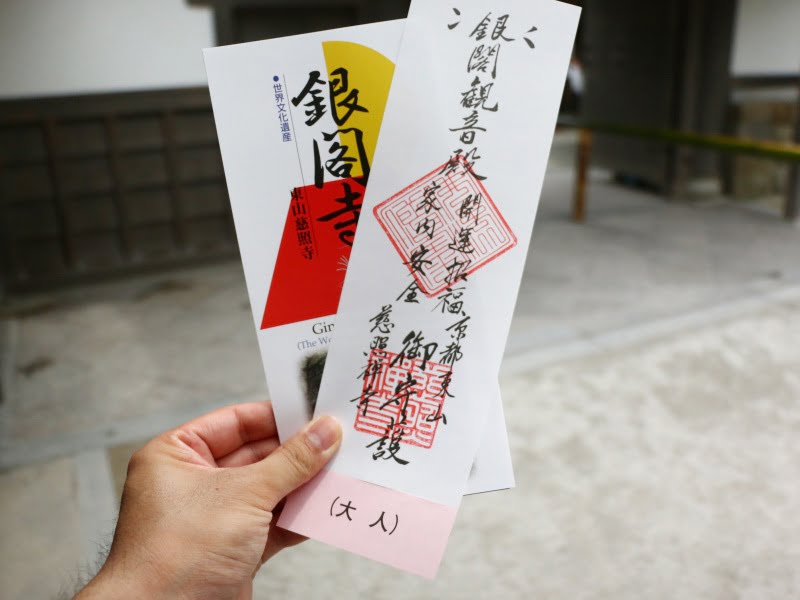 ●世界文化遺産
銀閣寺
東山慈照寺
Gin
(The Wo
銀閣観音殿
開運招福
家内安全
御守護
京都東山
慈照禅寺
(大人)